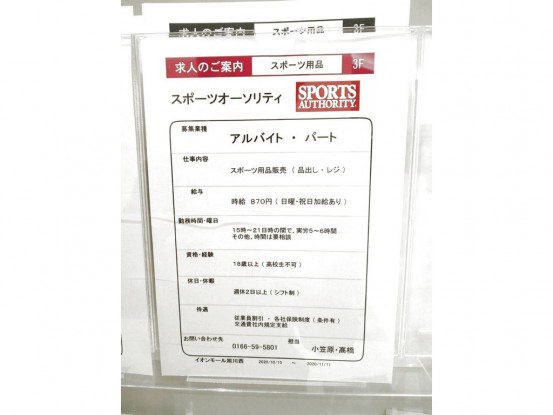 求人のご案内 スポーツ用品 3F
求人のご案内 スポーツ用品 3F
スポーツオーソリティ SPORTS AUTHORITY
募集業種
アルバイト ・ パート
仕事内容
スポーツ用品販売 ( 品出し・レジ )
給与
時給 870円 ( 日曜・祝日加給あり )
勤務時間・曜日
15時〜21日時の間で、実労5〜6時間
その他、時間は要相談
資格・経験
18歳以上 ( 高校生不可 )
休日・休暇
週休2日以上 ( シフト制 )
待遇
従業員割引 ・ 各社保険制度 ( 条件有 )
交通費社内規定支給
お問い合わせ先 0166-59-5801 担当 小笠原・高橋
イオンモール旭川西 2020/10/10 ー 2020/11/11